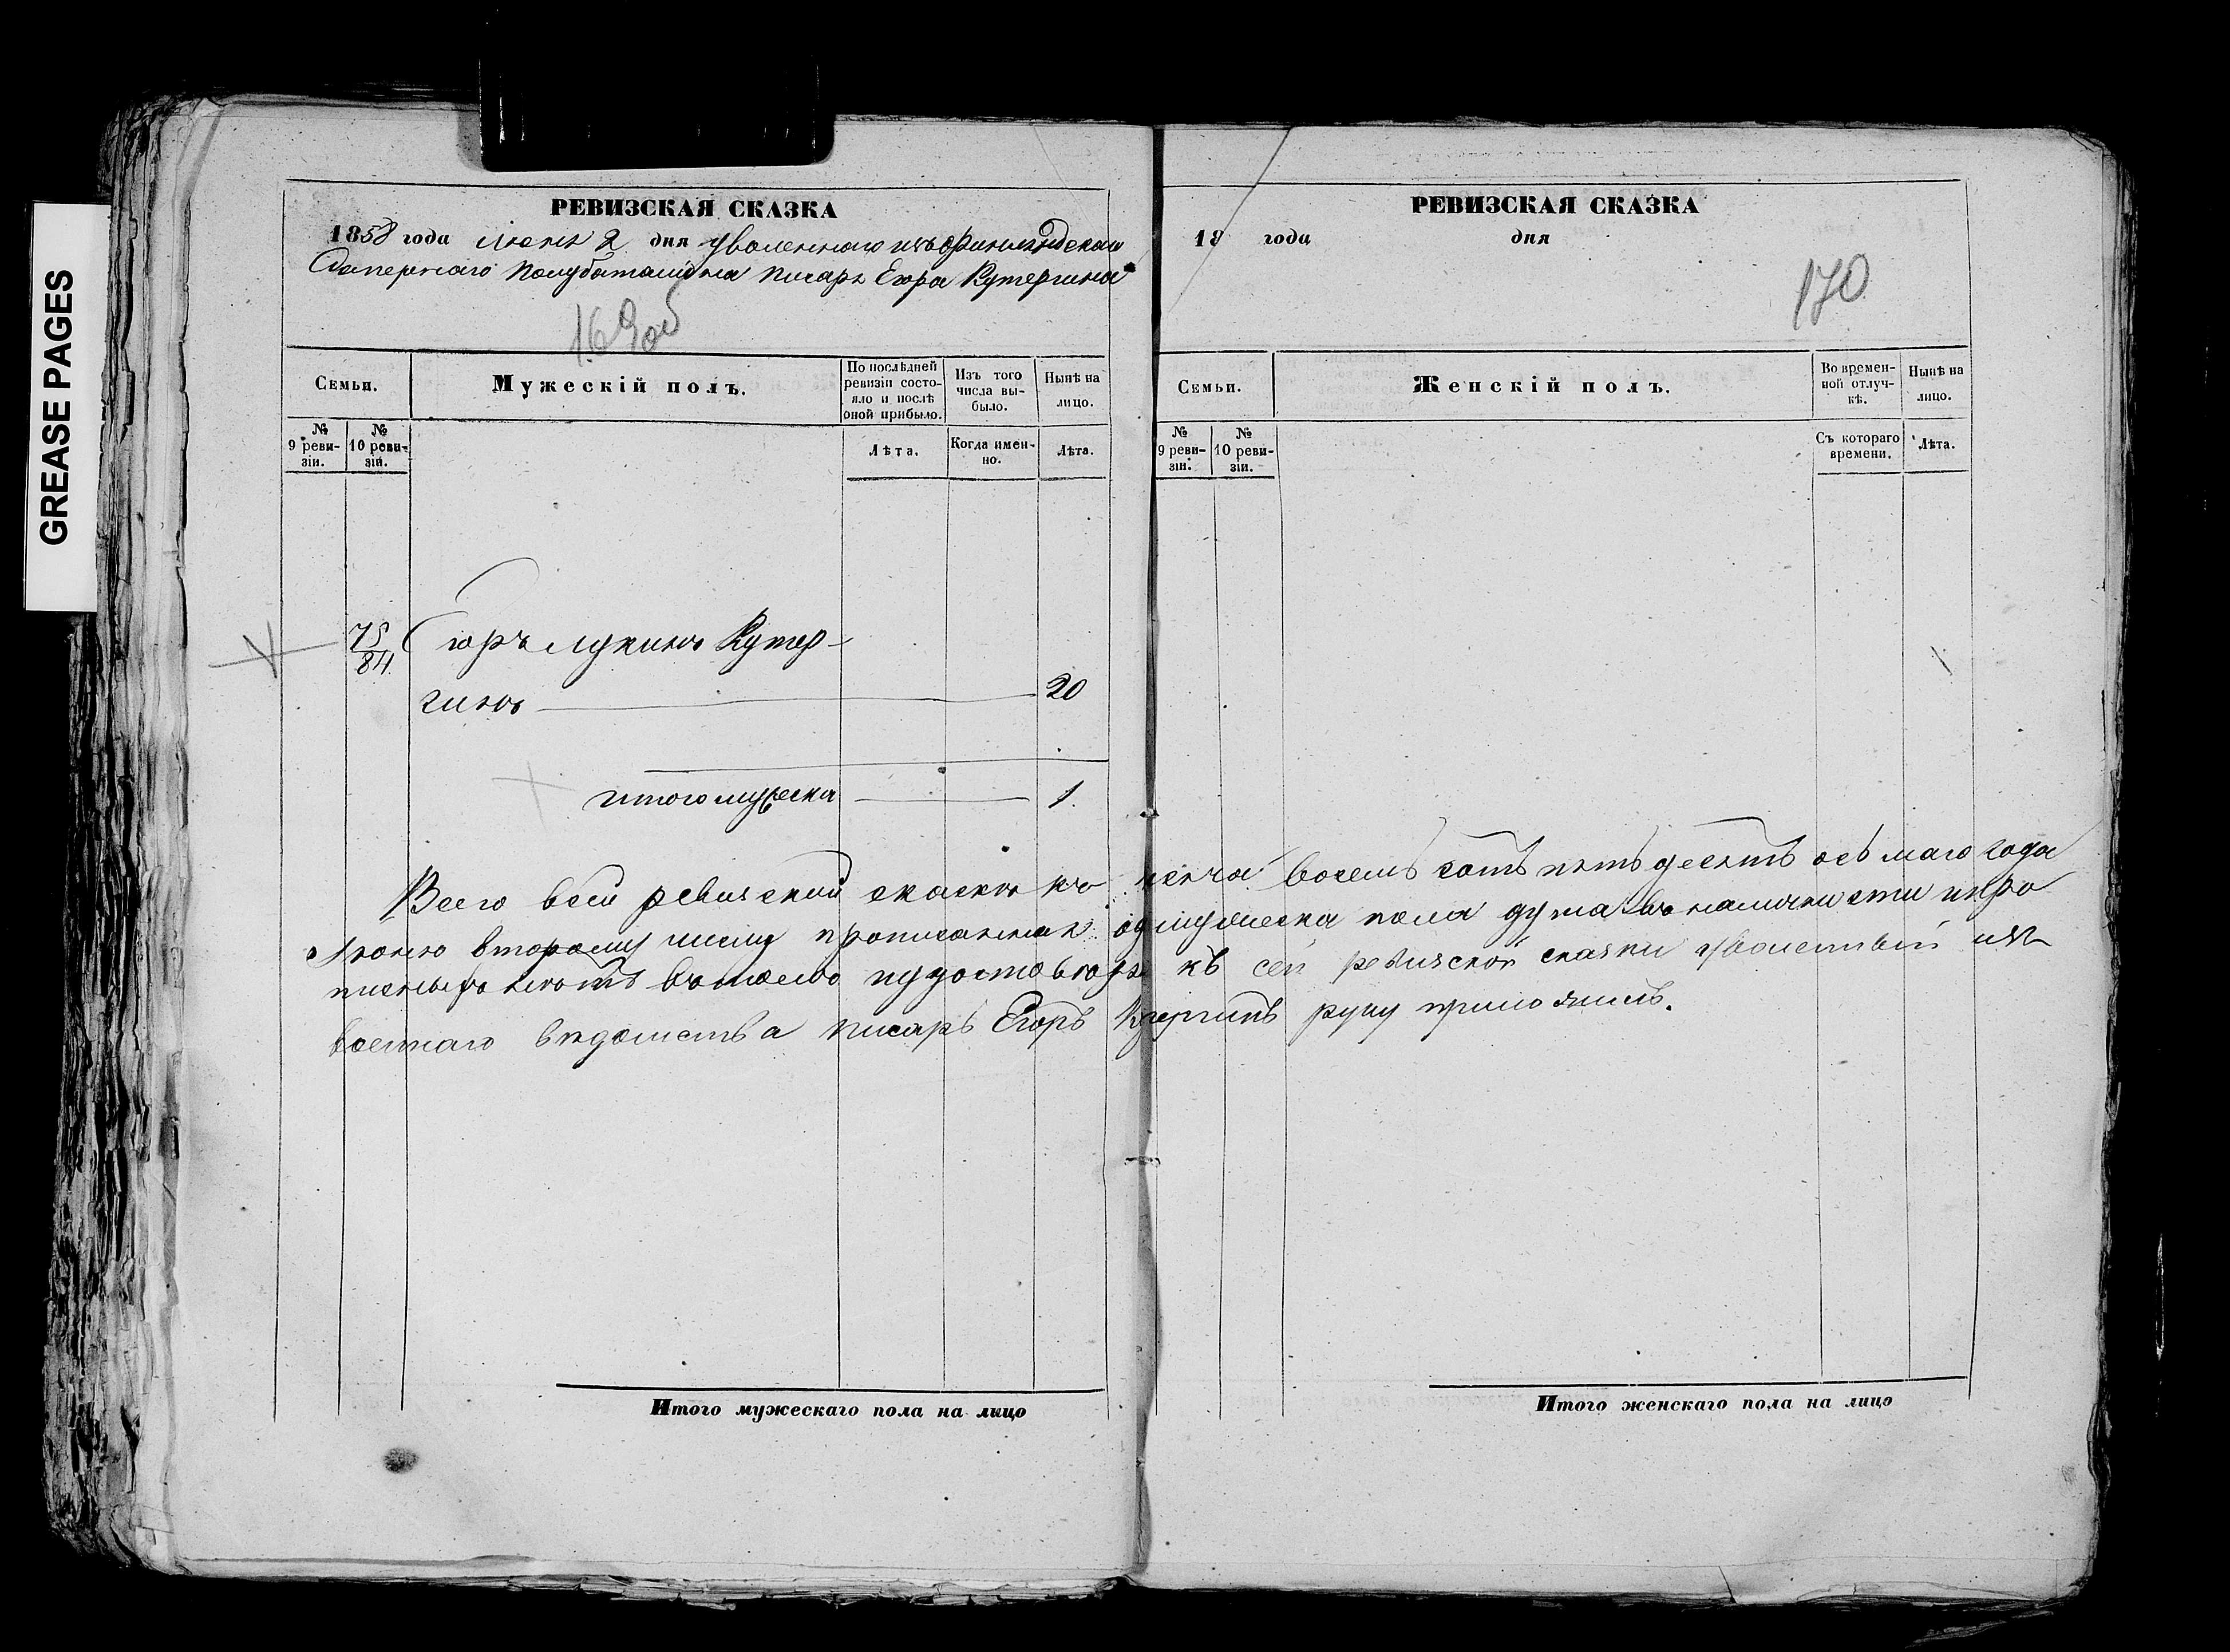 GREASE PAGES
РЕВИЗСКАЯ СКАЗКА
1858 года Июня 2 дня уволеннаго изъ Финляндскаго
Сапернаго Полубаталіона писаря Егора Кутергина
169 об
Семьи.
Мужескій полъ.
По послѣдней ревизіи состояло и послѣ оной прибыло.
Изъ того числа выбыло.
Нынѣ на лицо.
№ 9 ревизіи.
№ 10 ревизіи.
Лѣта.
Когда именно.
Лѣта.
75/84 Егоръ Лукинъ Кутер-
гинъ 20
итого мужеска 1.
РЕВИЗСКАЯ СКАЗКА
18 года дня
170
Семьи.
Женскій полъ.
Во временной отлучкѣ.
Нынѣ на лицо.
№ 9 ревизіи.
№ 10 ревизіи.
Съ котораго времени.
Лѣта.
Всего всей ревизской сказки къ восемь сотъ пятьдесятъ осьмаго года
Іюню второму числу мужеска пола душа въ наличности
къ сей ревизской сказки уволенный изъ
военнаго вѣдомства писарь Егоръ Кутергинъ руку приложилъ.
Итого мужескаго пола на лицо
Итого женскаго пола на лицо